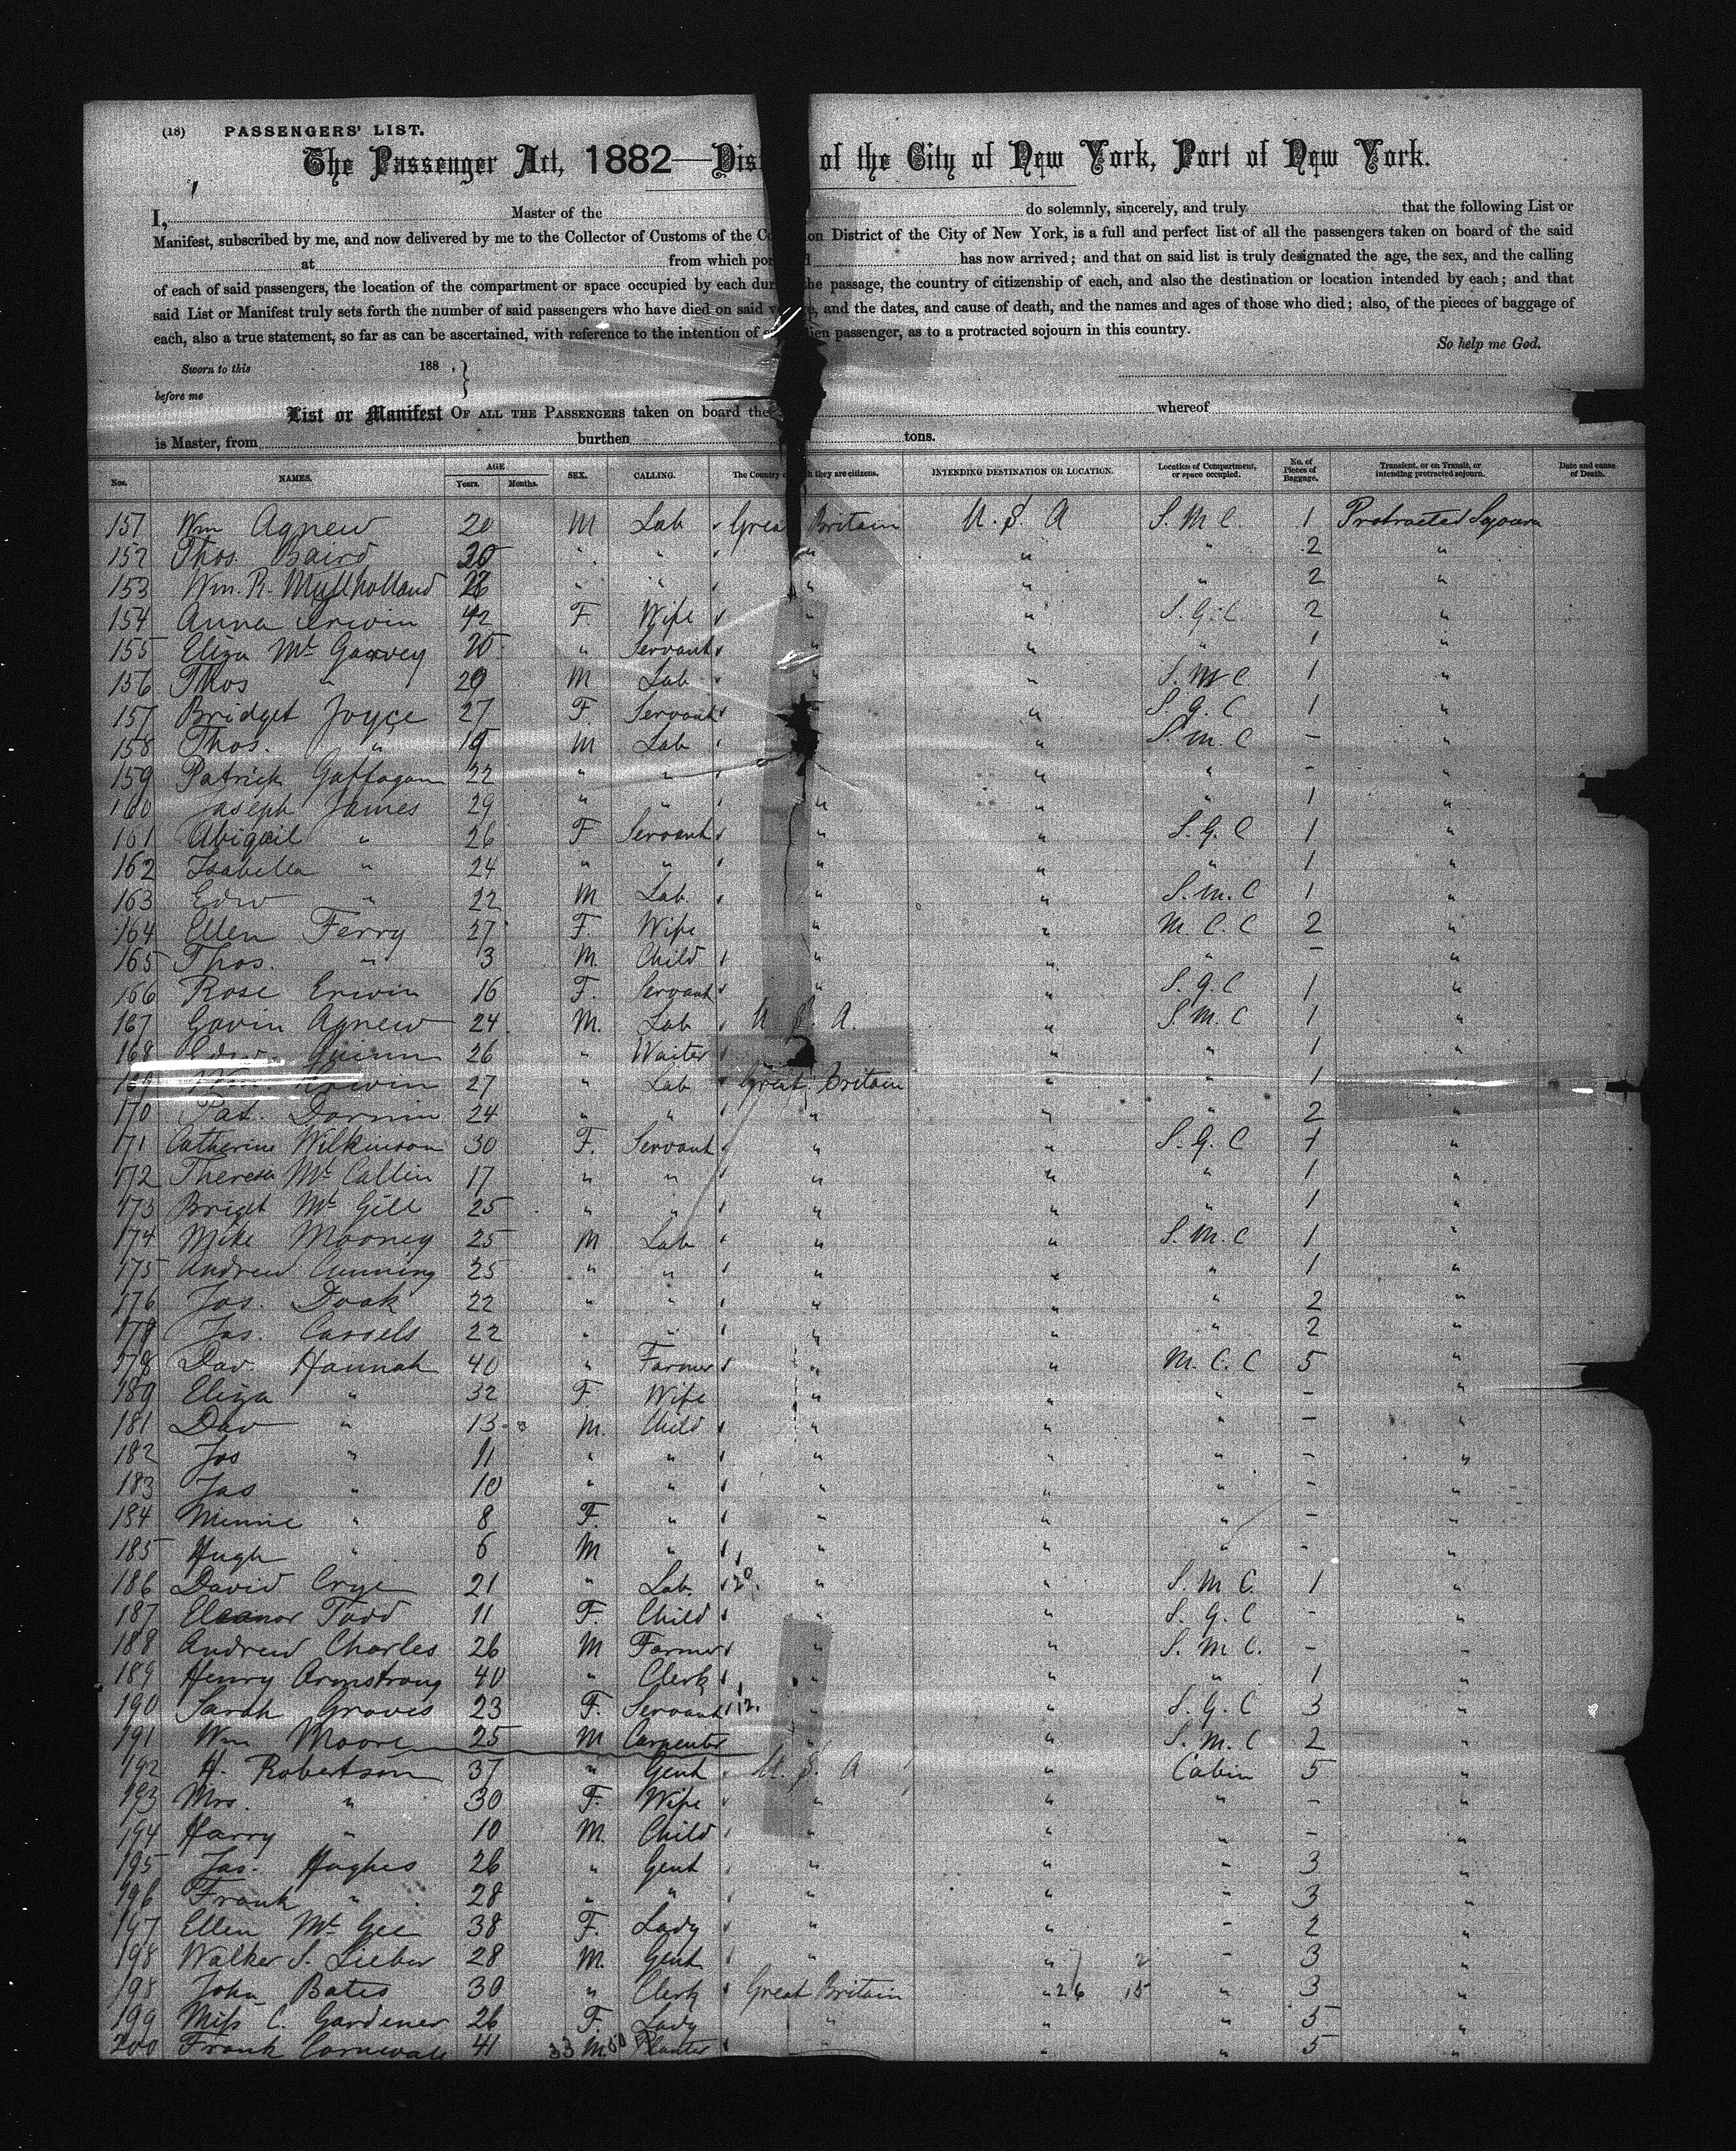 (18) PASSENGERS' LIST.
The Passenger Act, 1882—Dis of the City of New York, Port of New York.
I, Master of the do solemnly, sincerely, and truly that the following List or
Manifest, subscribed by me, and now delivered by me to the Collector of Customs of the Co on District of the City of New York, is a full and perfect list of all the passengers taken on board of the said
at from which por d has now arrived; and that on said list is truly designated the age, the sex, and the calling
of each of said passengers, the location of the compartment or space occupied by each dur the passage, the country of citizenship of each, and also the destination or location intended by each; and that
said List or Manifest truly sets forth the number of said passengers who have died on said v e, and the dates, and cause of death, and the names and ages of those who died; also, of the pieces of baggage of
each, also a true statement, so far as can be ascertained, with reference to the intention of e ien passenger, as to a protracted sojourn in this country.
So help me God.
Sworn to this 188 .
before me
List or Manifest OF ALL THE PASSENGERS taken on board the whereof
is Master, from burthen tons.
Nos. NAMES. AGE Years. Months. SEX. CALLING. The Country o h they are citizens. INTENDING DESTINATION OR LOCATION. Location of Compartment, or space occupied. No. of Pieces of Baggage. Transient, or on Transit, or intending protracted sojourn. Date and cause of Death.
151 Wm Agnew 20 M Lab Grea Britain U. S. A S. M C. 1 Protracted Sojourn
152 Thos. Baird 30 " " " " " 2 "
153 Wm. R. Mullholland 28 " " " " " 2 "
154 Anna Irwin 42 F. Wife " " S. G. C 2 "
155 Eliza Mc Garvey 20 " Servant " " " 1 "
156 Thos " 29 M Lab " " S. M C 1 "
157 Bridget Joyce 27 F. Servant " S. G. C 1 "
158 Thos. " 19 M Lab " S. M. C - "
159 Patrick Gaffagan 22 " " " " - "
160 Joseph James 29 " " " " " 1 "
161 Abigail " 26 F Servant " " S. G. C 1 "
162 Isabella " 24 " " " " " 1 "
163 Edw " 22 M. Lab. " " S. M. C 1 "
164 Ellen Ferry 27 F. Wife " " M. C. C 2 "
165 Thos. " 3 M. Child " " " - "
166 Rose Erwin 16 F. Servant " " S. G. C 1 "
167 Gavin Agnew 24 M. Lab U. S. A. " S. M. C 1 "
168 Edw Quinn 26 " Waiter " " 1 "
169 Wm. Erwin 27 " Lab Great Britain " " 1 "
170 Pat. Dornin 24 " " " " " 2 "
171 Catherine Wilkinson 30 F. Servant " " S. G. C 1 "
172 Theresa Mc Callin 17 " " " " " 1 "
173 Bright Mc Gill 25 " " " " " 1 "
174 Mike Mooney 25 M Lab " " S. M. C 1 "
175 Andrew Cunning 25 " " " " " 1 "
176 Jos. Doak 22 " " " " " 2 "
178 Jas. Cassels 22 " " " " " 2 "
178 Dav. Hannah 40 " Farmer " " M. C. C 5 "
180 Eliza " 32 F. Wife " " " - "
181 Dav " 13 M. Child " " " - "
182 Jos " 11 " " " " " - "
183 Jas " 10 " " " " " - "
184 Minnie " 8 F. " " " " - "
185 Hugh " 6 M " " " " - "
186 David Crye 21 " Lab. 20 " " S. M C. 1 "
187 Eleanor Todd 11 F. Child " " S. G. C - "
188 Andrew Charles 26 M Farmer " " S. M C. - -
189 Henry Armstrong 40 " Clerk " " " 1 "
190 Sarah Graves 23 F. Servant 12. " " S. G. C 3 "
191 Wm Moore 25 M Carpenter " " S. M. C 2 "
192 H. Robertson 37 " Gent U. S. A " Cabin 5 "
193 Mrs. " 30 F. Wife " " " - "
194 Harry " 10 M. Child " " " - "
195 Jas. Hughes 26 " Gent " " " 3 "
196 Frank " 28 " " " " " 3 "
197 Ellen Mc Gee 38 F. Lady " " - 2 "
198 Walker S. Lieber 28 M. Gent " " - 3 "
198 John Bates 30 " Clerk Great Britain " 26 15 " 3 "
199 Miss C. Gardener 26 F. Lady " " " 5 "
200 Frank Cornwall 41 33 M. 00 Planter " " " 5 "